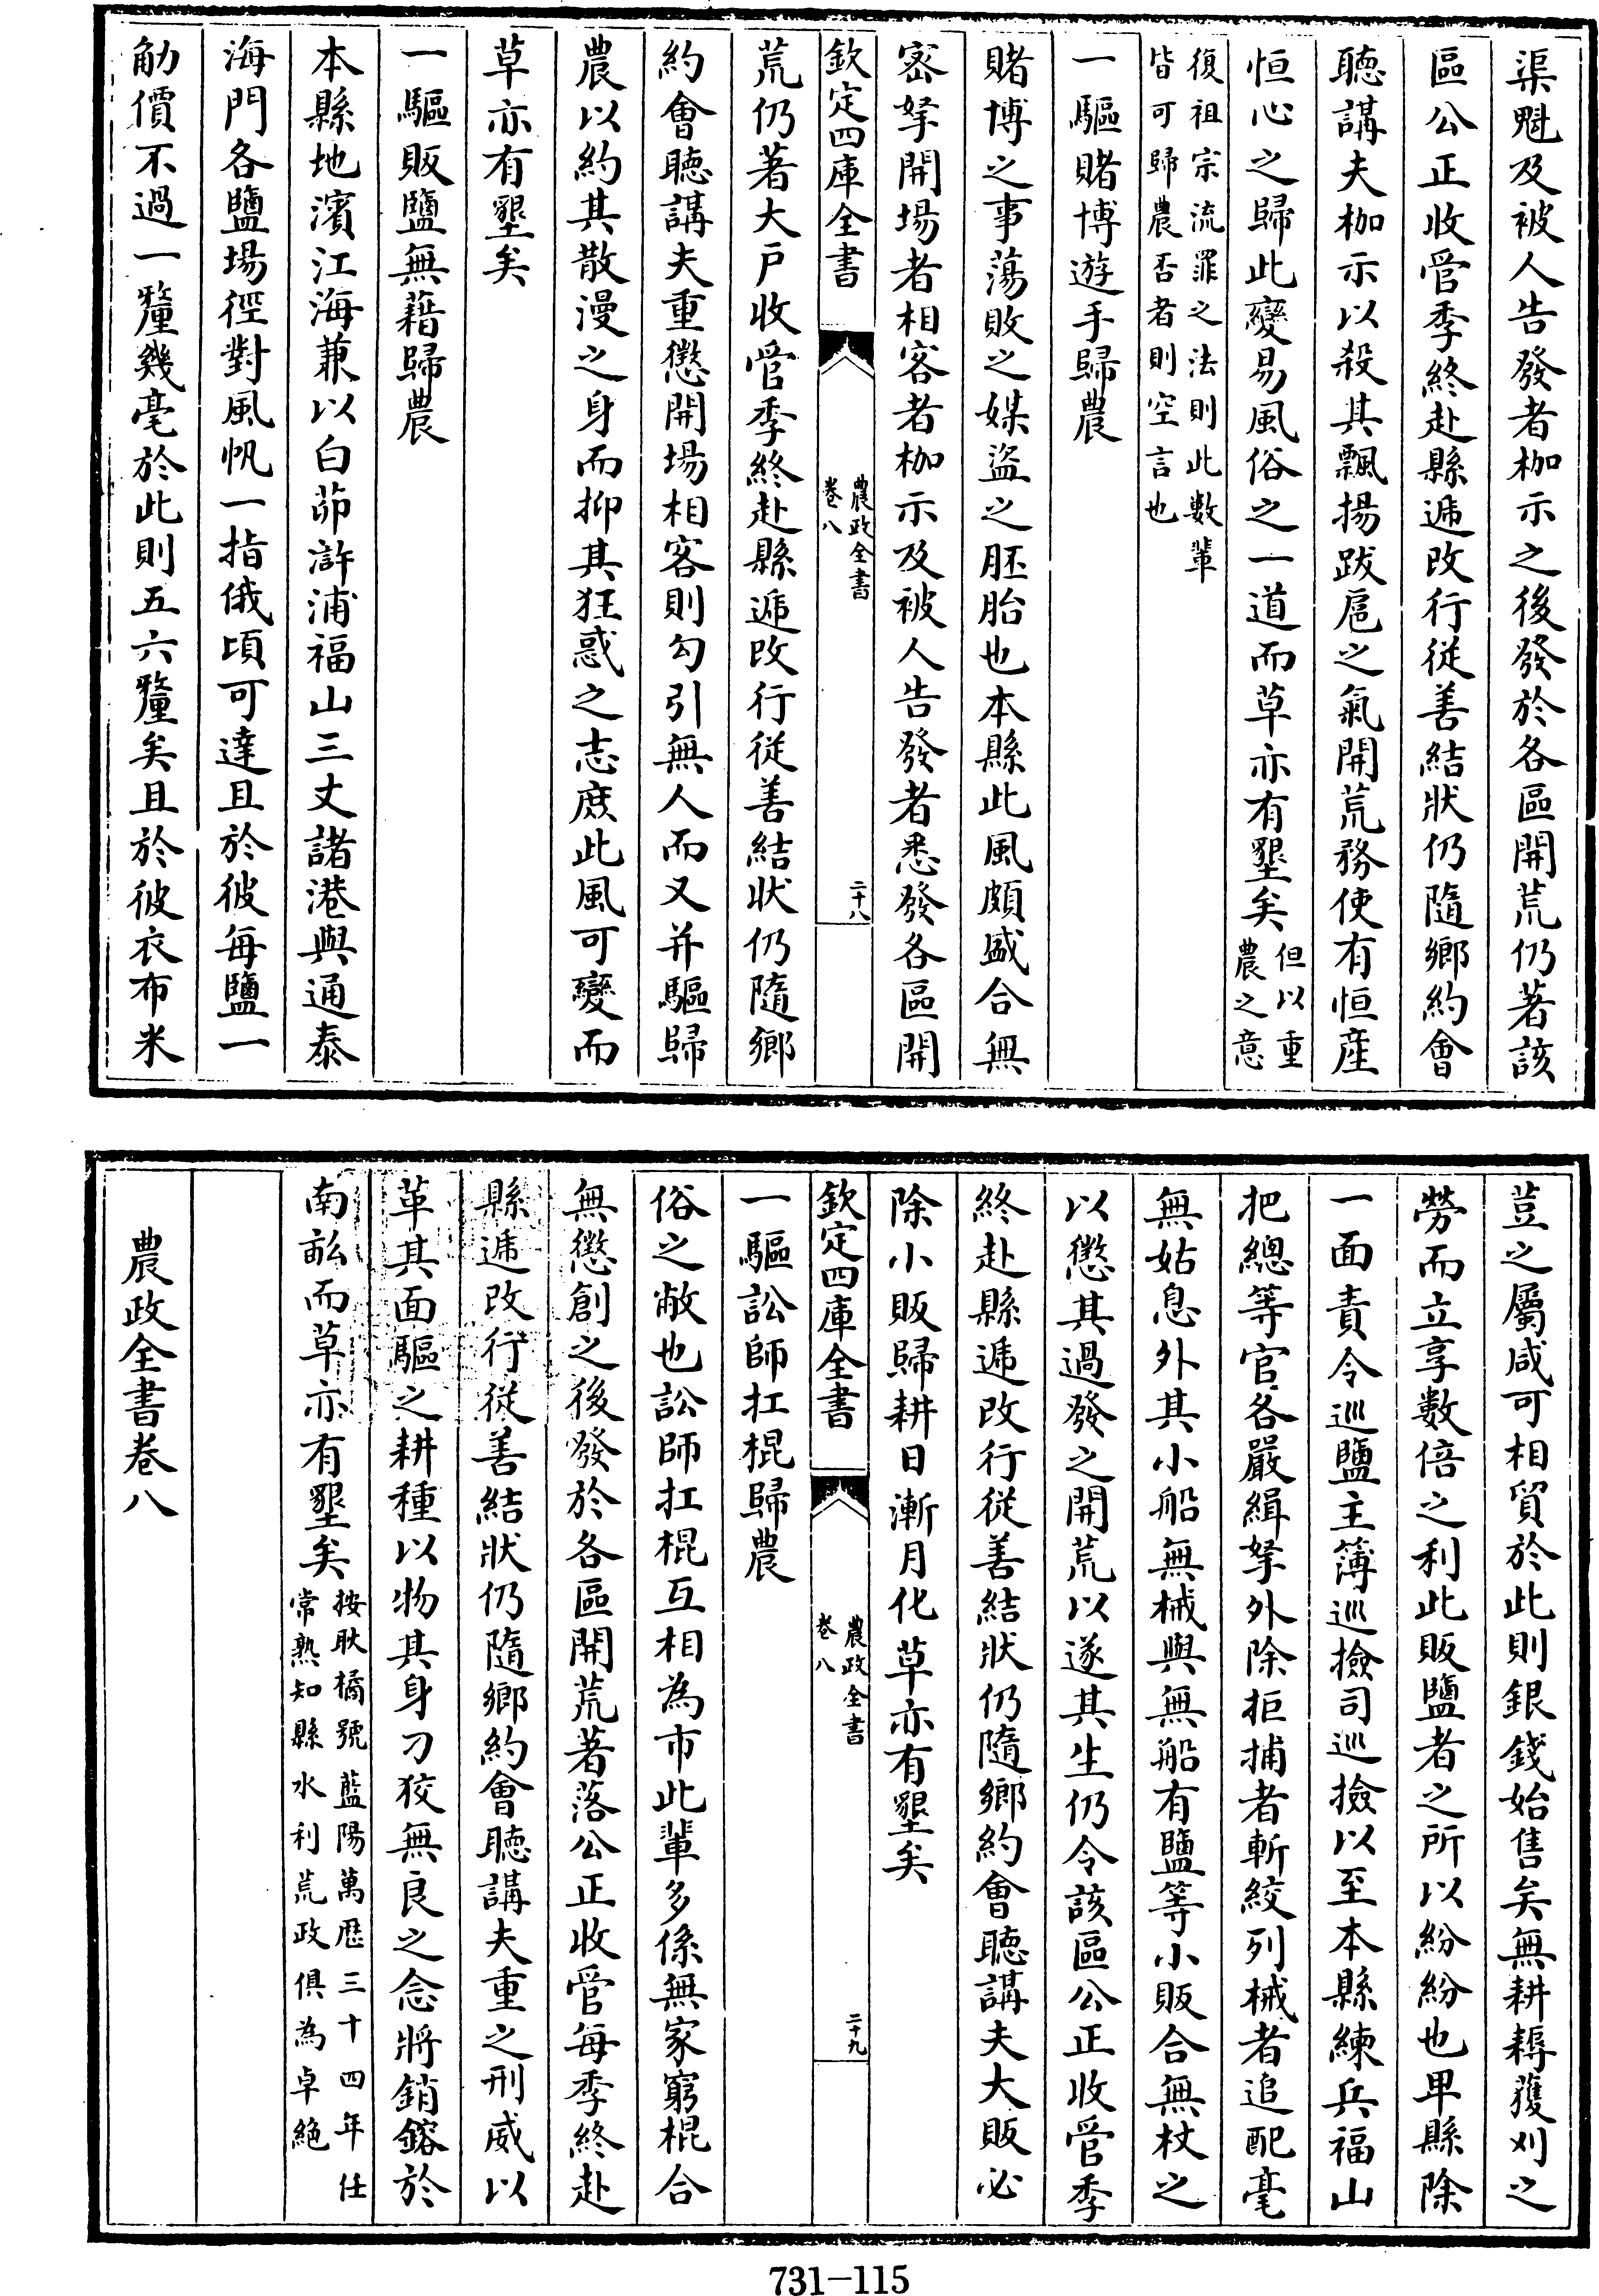 渠魁及被人告發者枷示之後發於各區開荒仍著該
區公正收管季終赴縣遞改行從善結狀仍隨鄉約會
聽講夫枷示以殺其飄揚跋扈之氣開荒務使有恒産
恒心之歸此變易風俗之一道而草亦有墾矣但以重
農之意
復祖宗流罪之法則此數輩
皆可歸農否者則空言也
一驅賭博遊手歸農
賭博之事蕩敗之媒盜之胚胎也本縣此風頗盛合無
密拏開場者相客者枷示及被人告發者悉發各區開
欽定四庫全書
農政全書
卷八
二十八
荒仍著大戶收管季終赴縣遞改行從善結狀仍隨鄉
約會聽講夫重懲開場相客則勾引無人而又并驅歸
農以約其散漫之身而抑其狂惑之志庶此風可變而
草亦有墾矣
一驅販鹽無藉歸農
本縣地濱江海兼以白茆滸浦福山三丈諸港與通泰
海門各鹽場徑對風帆一指俄頃可達且於彼每鹽一
觔價不過一釐幾毫於此則五六釐矣且於彼衣布米
荳之屬咸可相貿於此則銀錢始售矣無耕耨獲刈之
勞而立享數倍之利此販鹽者之所以紛紛也畢縣除
一面責令巡鹽主簿巡撿司巡撿以至本縣練兵福山
把總等官各嚴緝拏外除拒捕者斬絞列械者追配毫
無姑息外其小船無械與無船有鹽等小販合無杖之
以懲其過發之開荒以遂其生仍令該區公正收管季
終赴縣遞改行從善結狀仍隨鄉約會聽講夫大販必
除小販歸耕日漸月化草亦有墾矣
欽定四庫全書
農政全書
卷八
二十九
一驅訟師扛棍歸農
俗之敝也訟師扛棍互相為市此輩多係無家窮棍合
無懲創之後發於各區開荒著落公正收管每季終赴
縣遞改行從善結狀仍隨鄉約會聽講夫重之刑威以
革其面驅之耕種以物其身刁狡無良之念將銷鎔於
南畝而草亦有墾矣按耿橘號藍陽萬歷三十四年任
常熟知縣水利荒政俱為卓絶
農政全書卷八
731-115